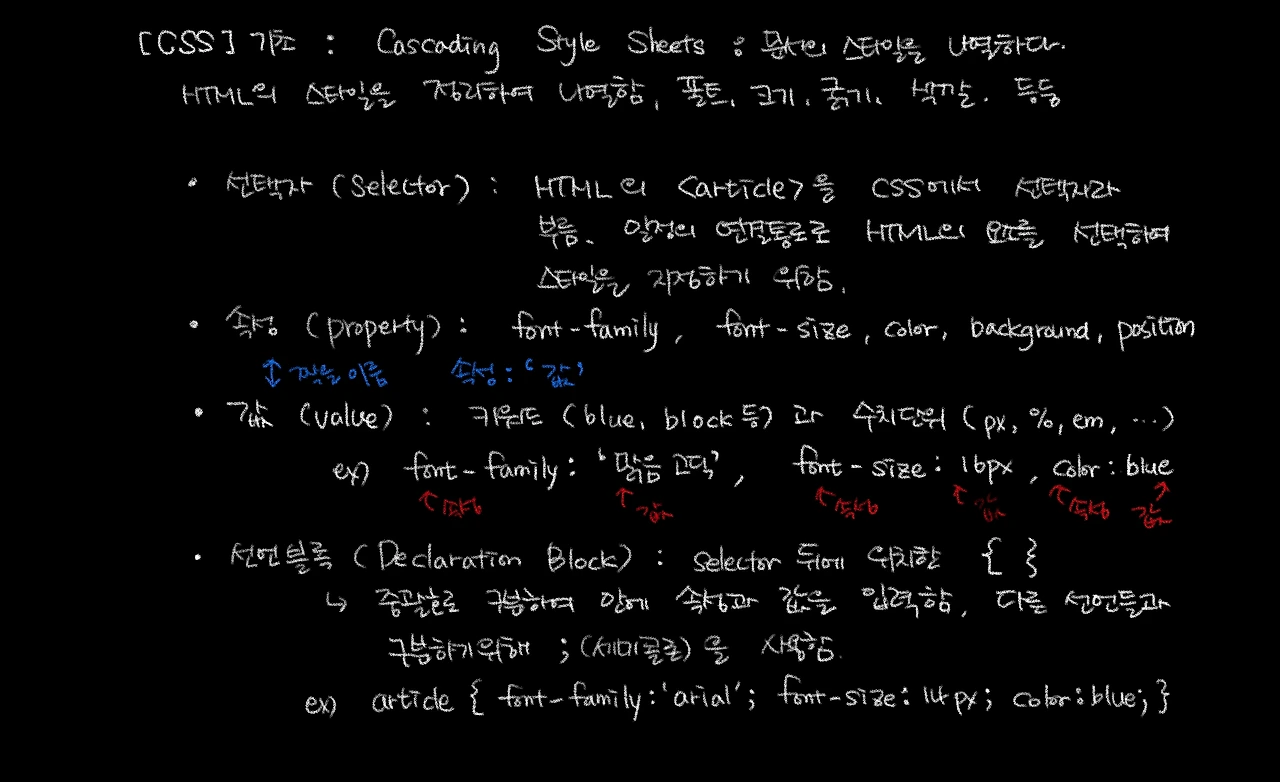 [CSS] 기초 : Cascading Style Sheets : 문서의 스타일을 나열하다.
HTML의 스타일을 정리하여 나열함, 폴트, 크기, 굵기, 색깔. 등등
• 선택자 (Selector) : HTML의 <article>을 CSS에서 선택자라
부름. 일정의 연결통로로 HTML의 요소를 선택하여
스타일을 지정하기 위함.
• 속성 (property) : font-family, font-size, color, background, position
↕ 짝을 이룸 속성 : ‘값’
• 값 (value) : 키워드 (blue, block 등) 과 수치단위 (px, %, em, ...)
ex) font-family : ‘맑음 고딕’, font-size : 16px, color : blue
↖속성 ↖값 ↖속성 ↖값 ↖속성 ↗값
• 선언블록 (Declaration Block) : selector 뒤에 위치한 { }
↳ 중괄호로 구분하여 안에 속성과 값을 입력함, 다른 선언들과
구분하기위해 ; (세미콜로) 을 사용함.
ex) article { font-family:'arial'; font-size: 14px; color:blue; }